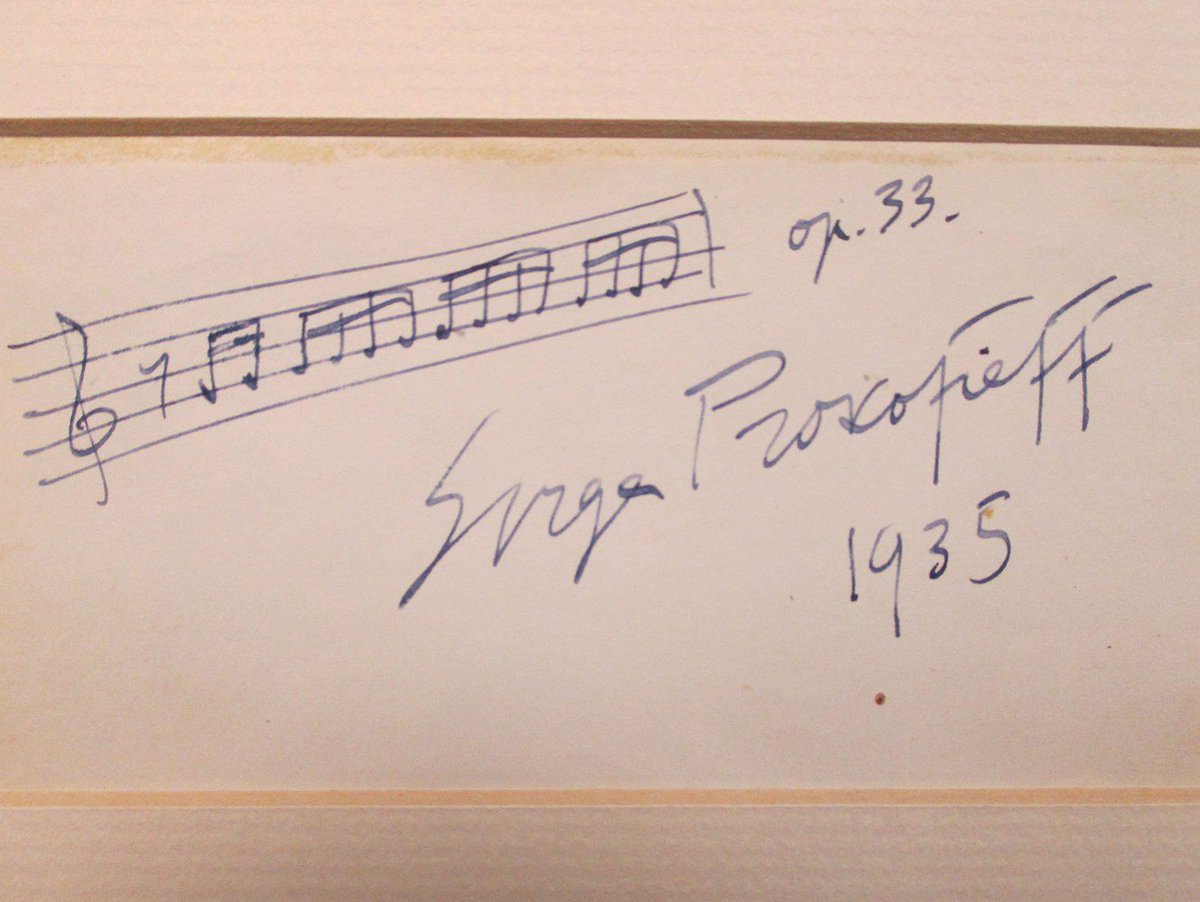 op. 33.
Serge Prokofieff
1935